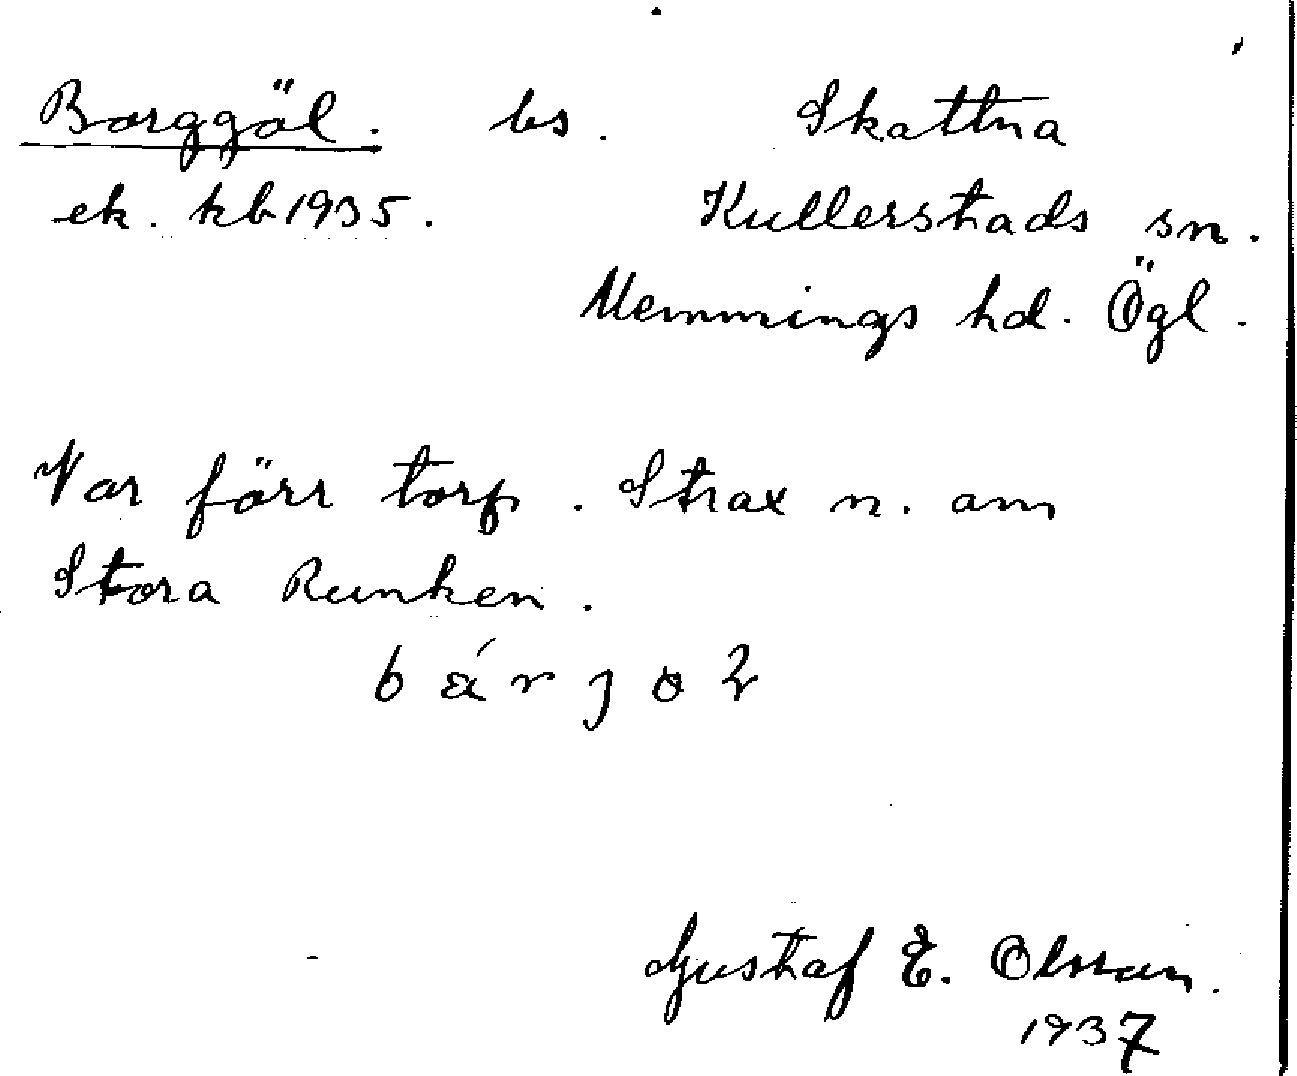 Borggöl. bs. Skattna
ek. kb 1935. Kullerstads sn.
Memmings hd. Ögl.
Var förr torp. Strax n. om
Stora Runken.
Gustaf E. Olsson.
1937